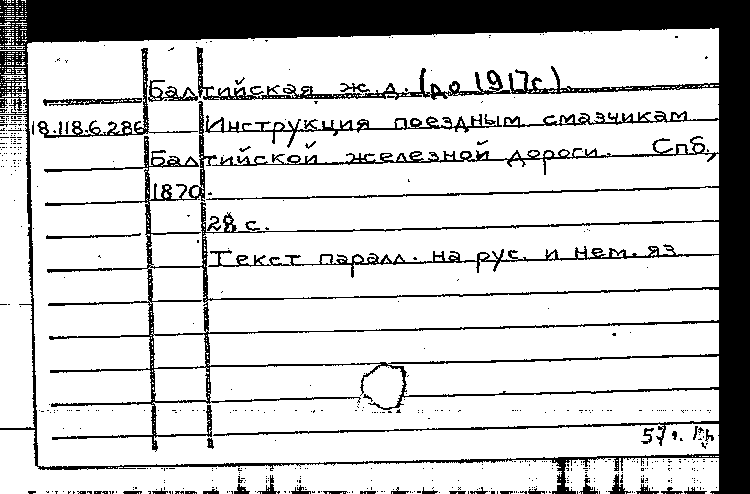 Балтийская ж.д. (до 1917г.)
18.118.6.286 Инструкция поездным смазчикам
Балтийской железной дороги. Спб,
1870.
28 с.
Текст паралл. на рус. и нем. яз
57г.